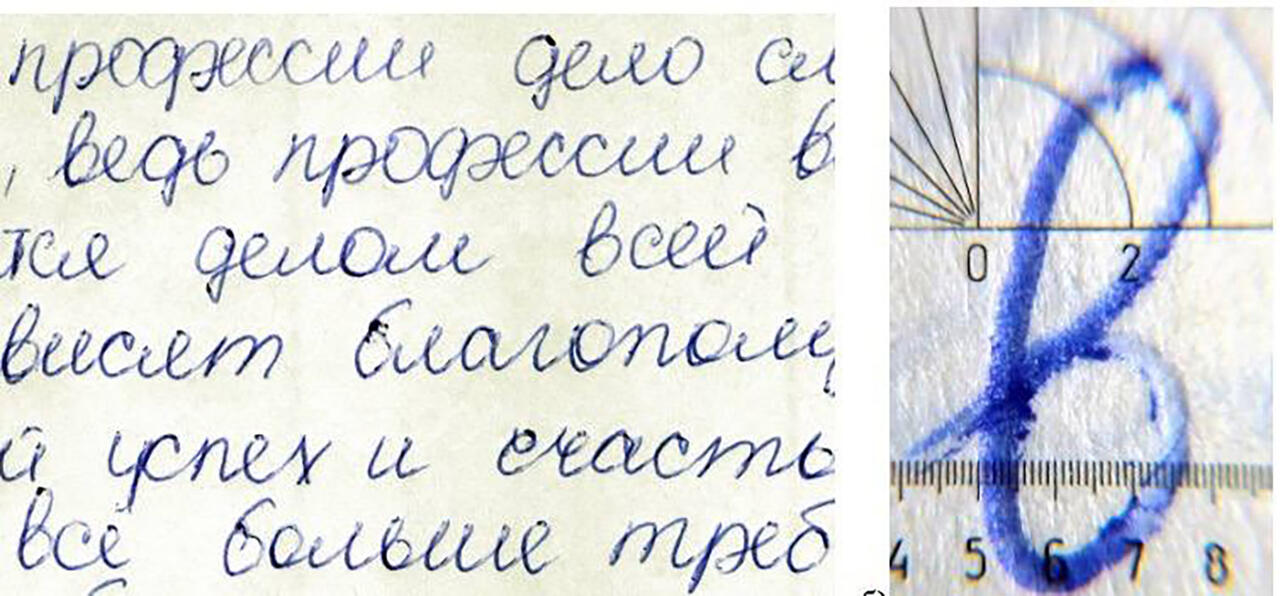 профессии дело сл
, ведь профессии в
тся делом всей
висят благополу
й успех и счасть
всё больше треб
в
0 2
4 5 6 7 8
б)